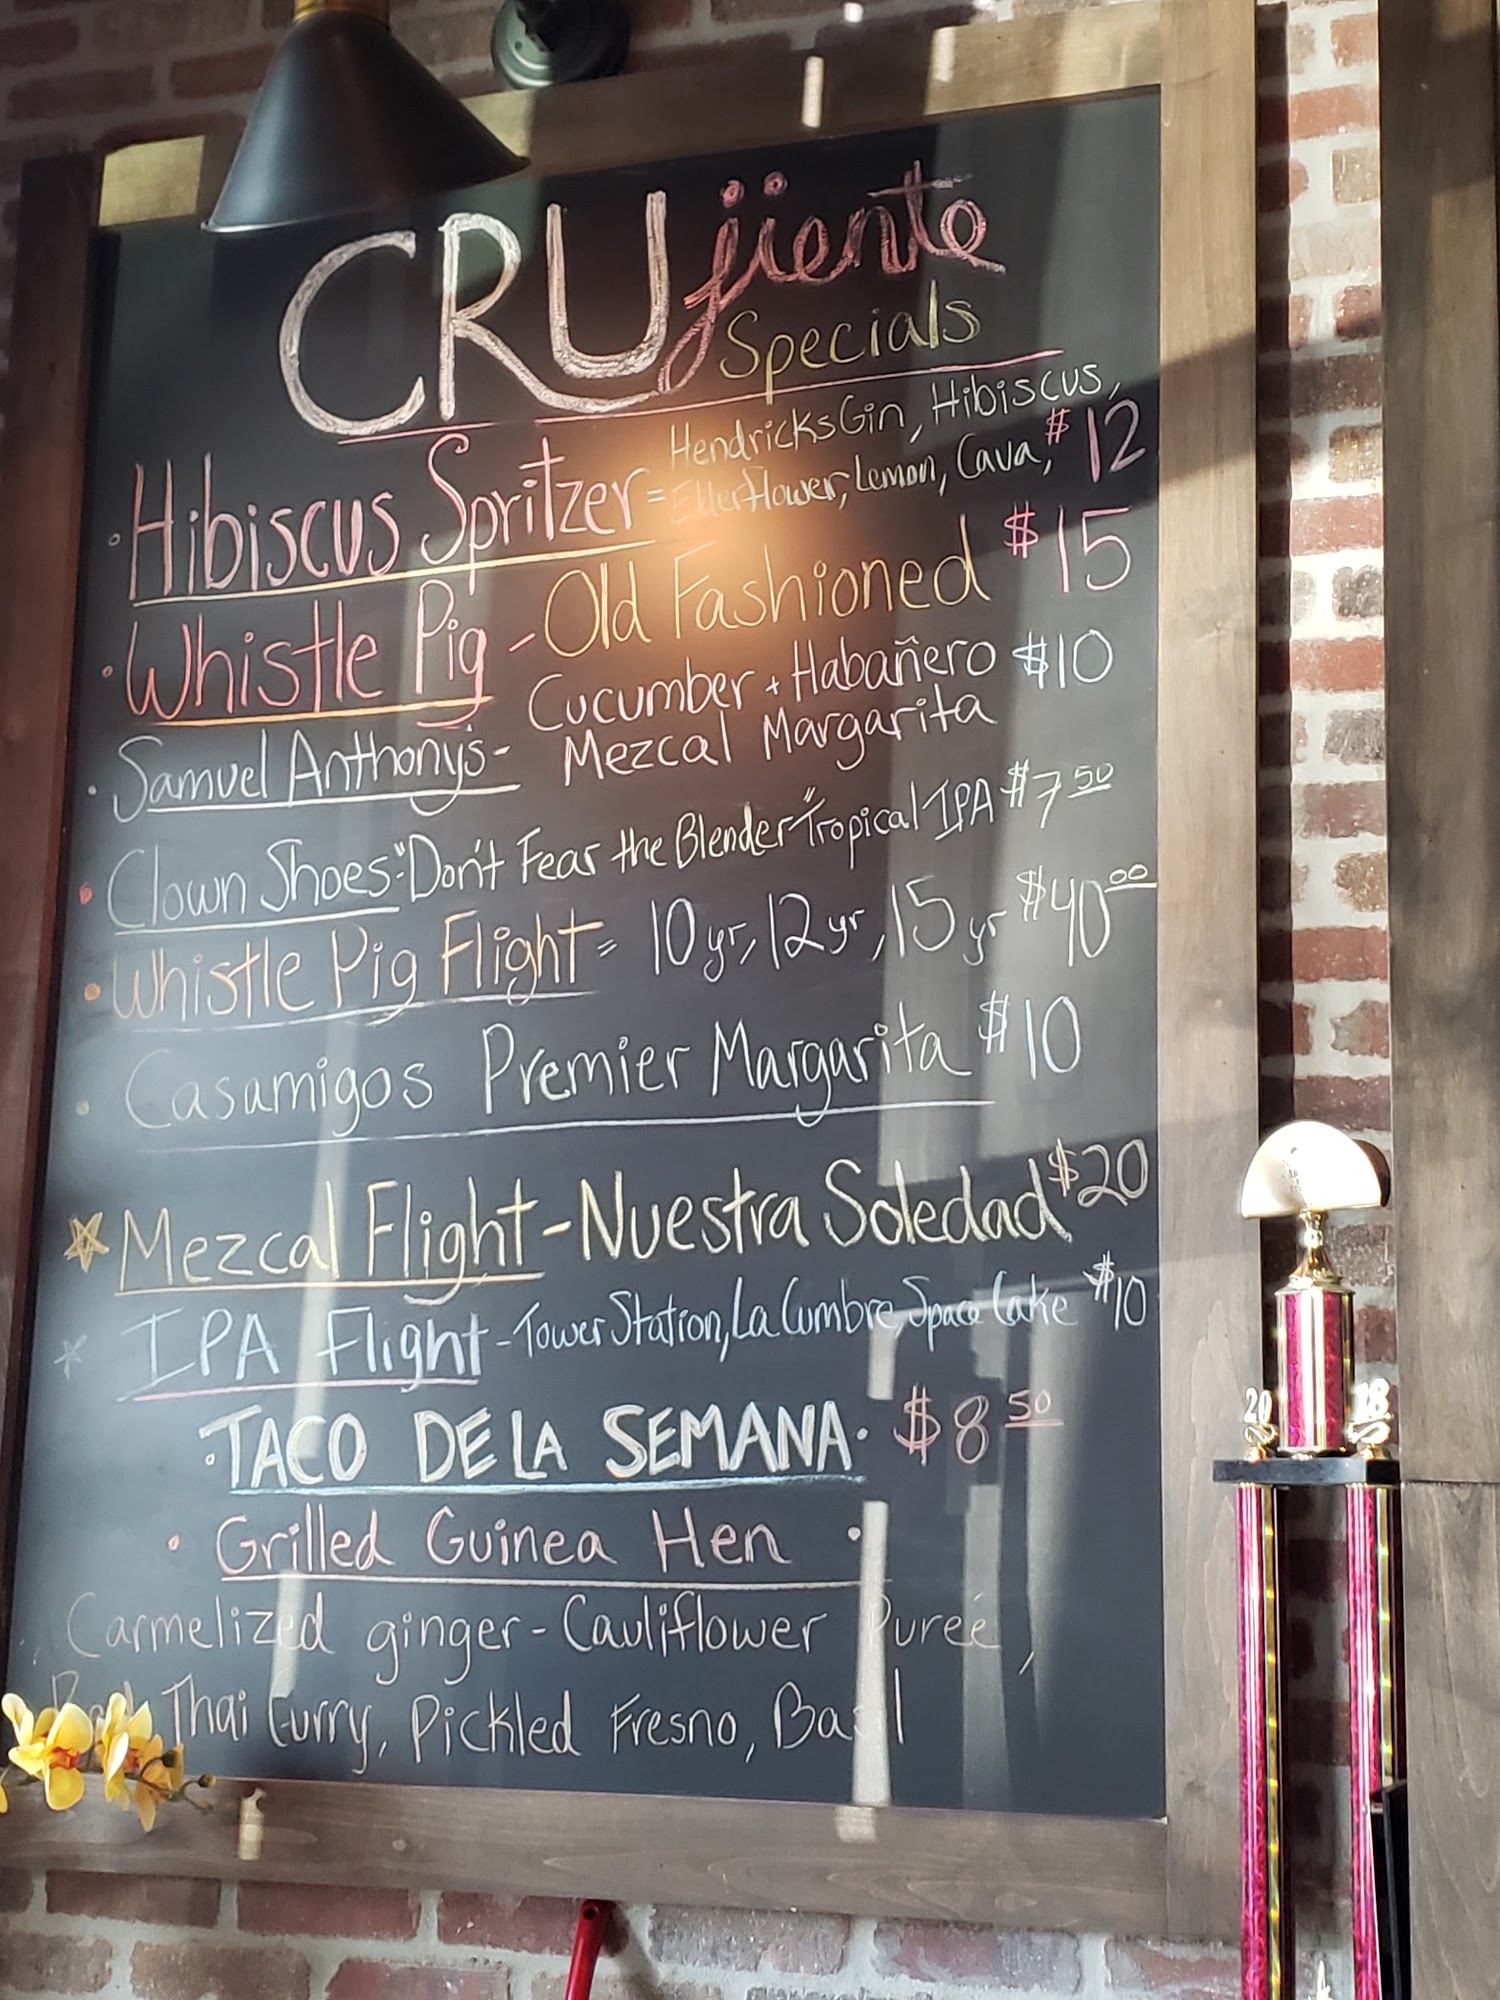 CRUjiente
Specials
• Hibiscus Spritzer = HendricksGin, Hibiscus,
Elderflower, Lemon, Cava, $12
• Whistle Pig - Old Fashioned $15
• Samuel Anthony's - Cucumber + Habañero $10
Mezcal Margarita
• Clown Shoes - "Don't Fear the Blender" Tropical IPA $7.50
• Whistle Pig Flight = 10 yr, 12 yr, 15 yr $40.00
• Casamigos Premier Margarita $10
Mezcal Flight - Nuestra Soledad $20
IPA Flight - Tower Station, La Cumbre, Space Cake $10
• TACO DE LA SEMANA • $8.50
• Grilled Guinea Hen •
Carmelized ginger - Cauliflower Pureé,
Thai Curry, Pickled Fresno, Basil
20 18